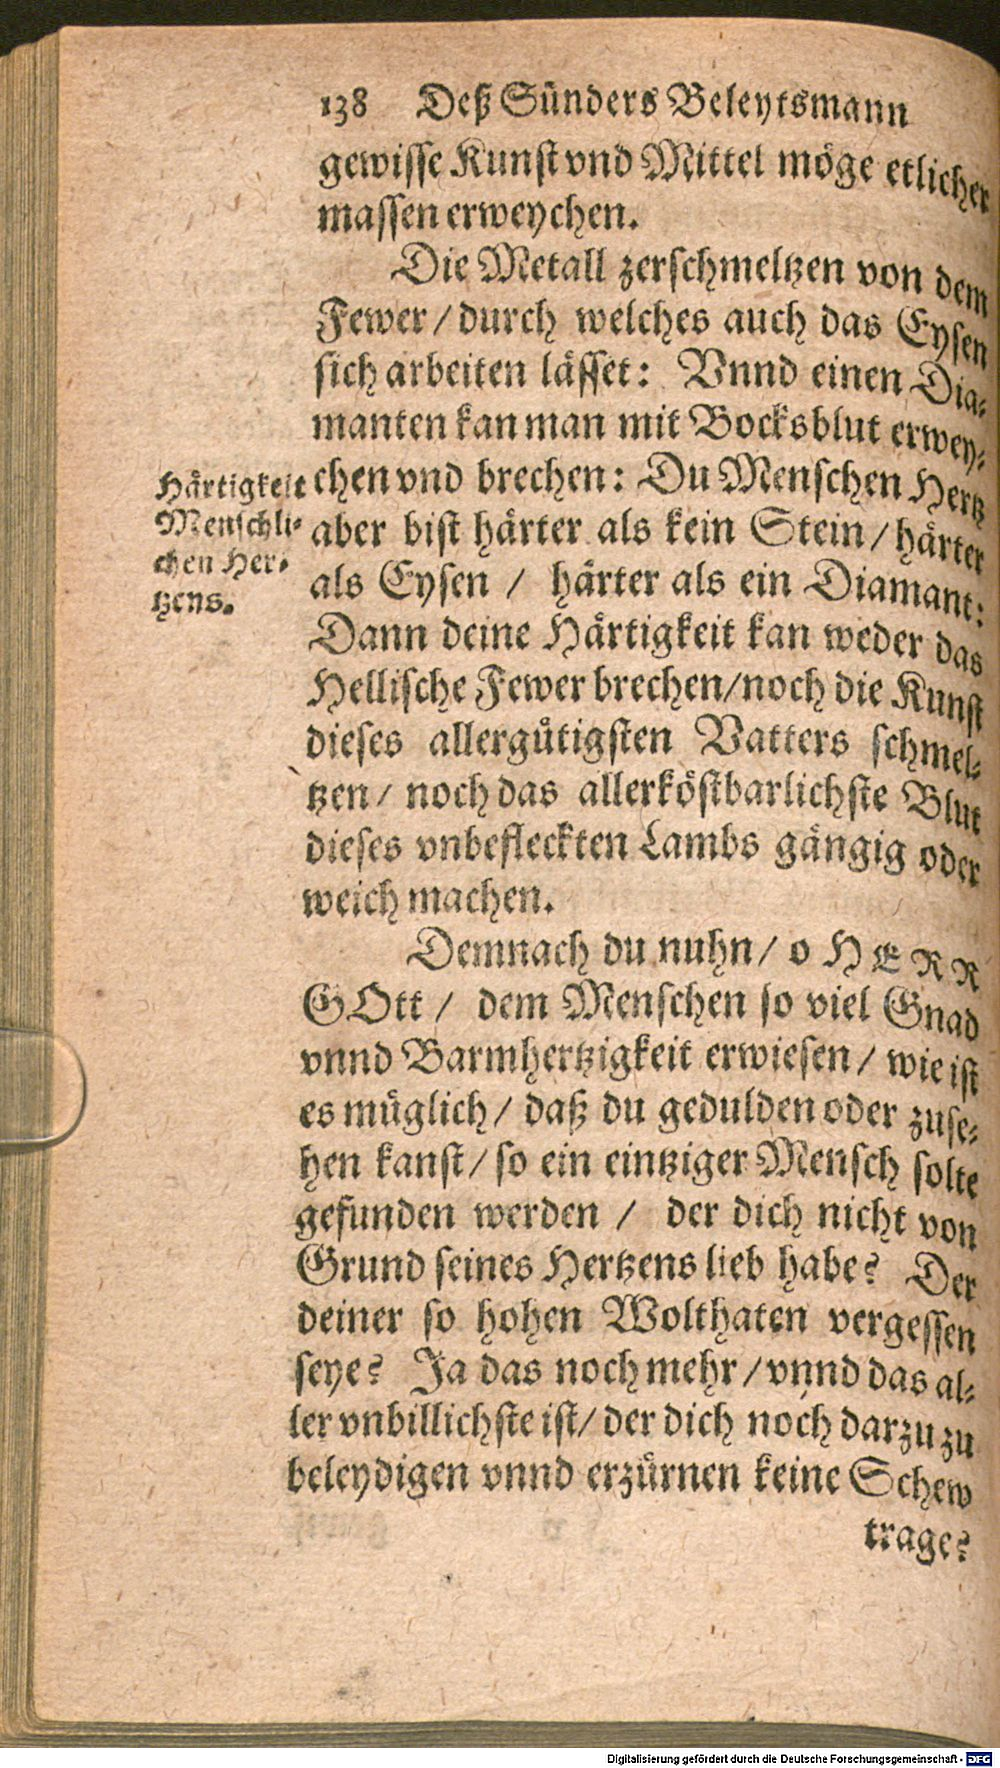 138 Deß Sünders Beleytsmann
gewisse Kunst vnd Mittel möge etlicher
massen erweychen.
Die Metall zerschmeltzen von dem
Fewer / durch welches auch das Eysen
sich arbeiten lässet: Vnnd einen Dia-
manten kan man mit Bocksblut erwey-
chen vnd brechen: Du Menschen Hertz
aber bist härter als kein Stein / härter
als Eysen / härter als ein Diamant:
Dann deine Härtigkeit kan weder das
Hellische Fewer brechen/noch die Kunst
dieses allergütigsten Vatters schmel-
tzen/ noch das allerköstbarlichste Blut
dieses vnbefleckten Lambs gängig oder
weich machen.
Härtigkeit
Menschli-
chen Her-
tzens.
Demnach du nuhn/ o HERR
GOtt / dem Menschen so viel Gnad
vnnd Barmhertzigkeit erwiesen/ wie ist
es müglich/ daß du gedulden oder zuse-
hen kanst/ so ein eintziger Mensch solte
gefunden werden / der dich nicht von
Grund seines Hertzens lieb habe? Der
deiner so hohen Wolthaten vergessen
seye? Ja das noch mehr/vnnd das al-
ler vnbillichste ist/ der dich noch darzu zu
beleydigen vnnd erzürnen keine Schew
trage?
Digitalisierung gefördert durch die Deutsche Forschungsgemeinschaft - DFG